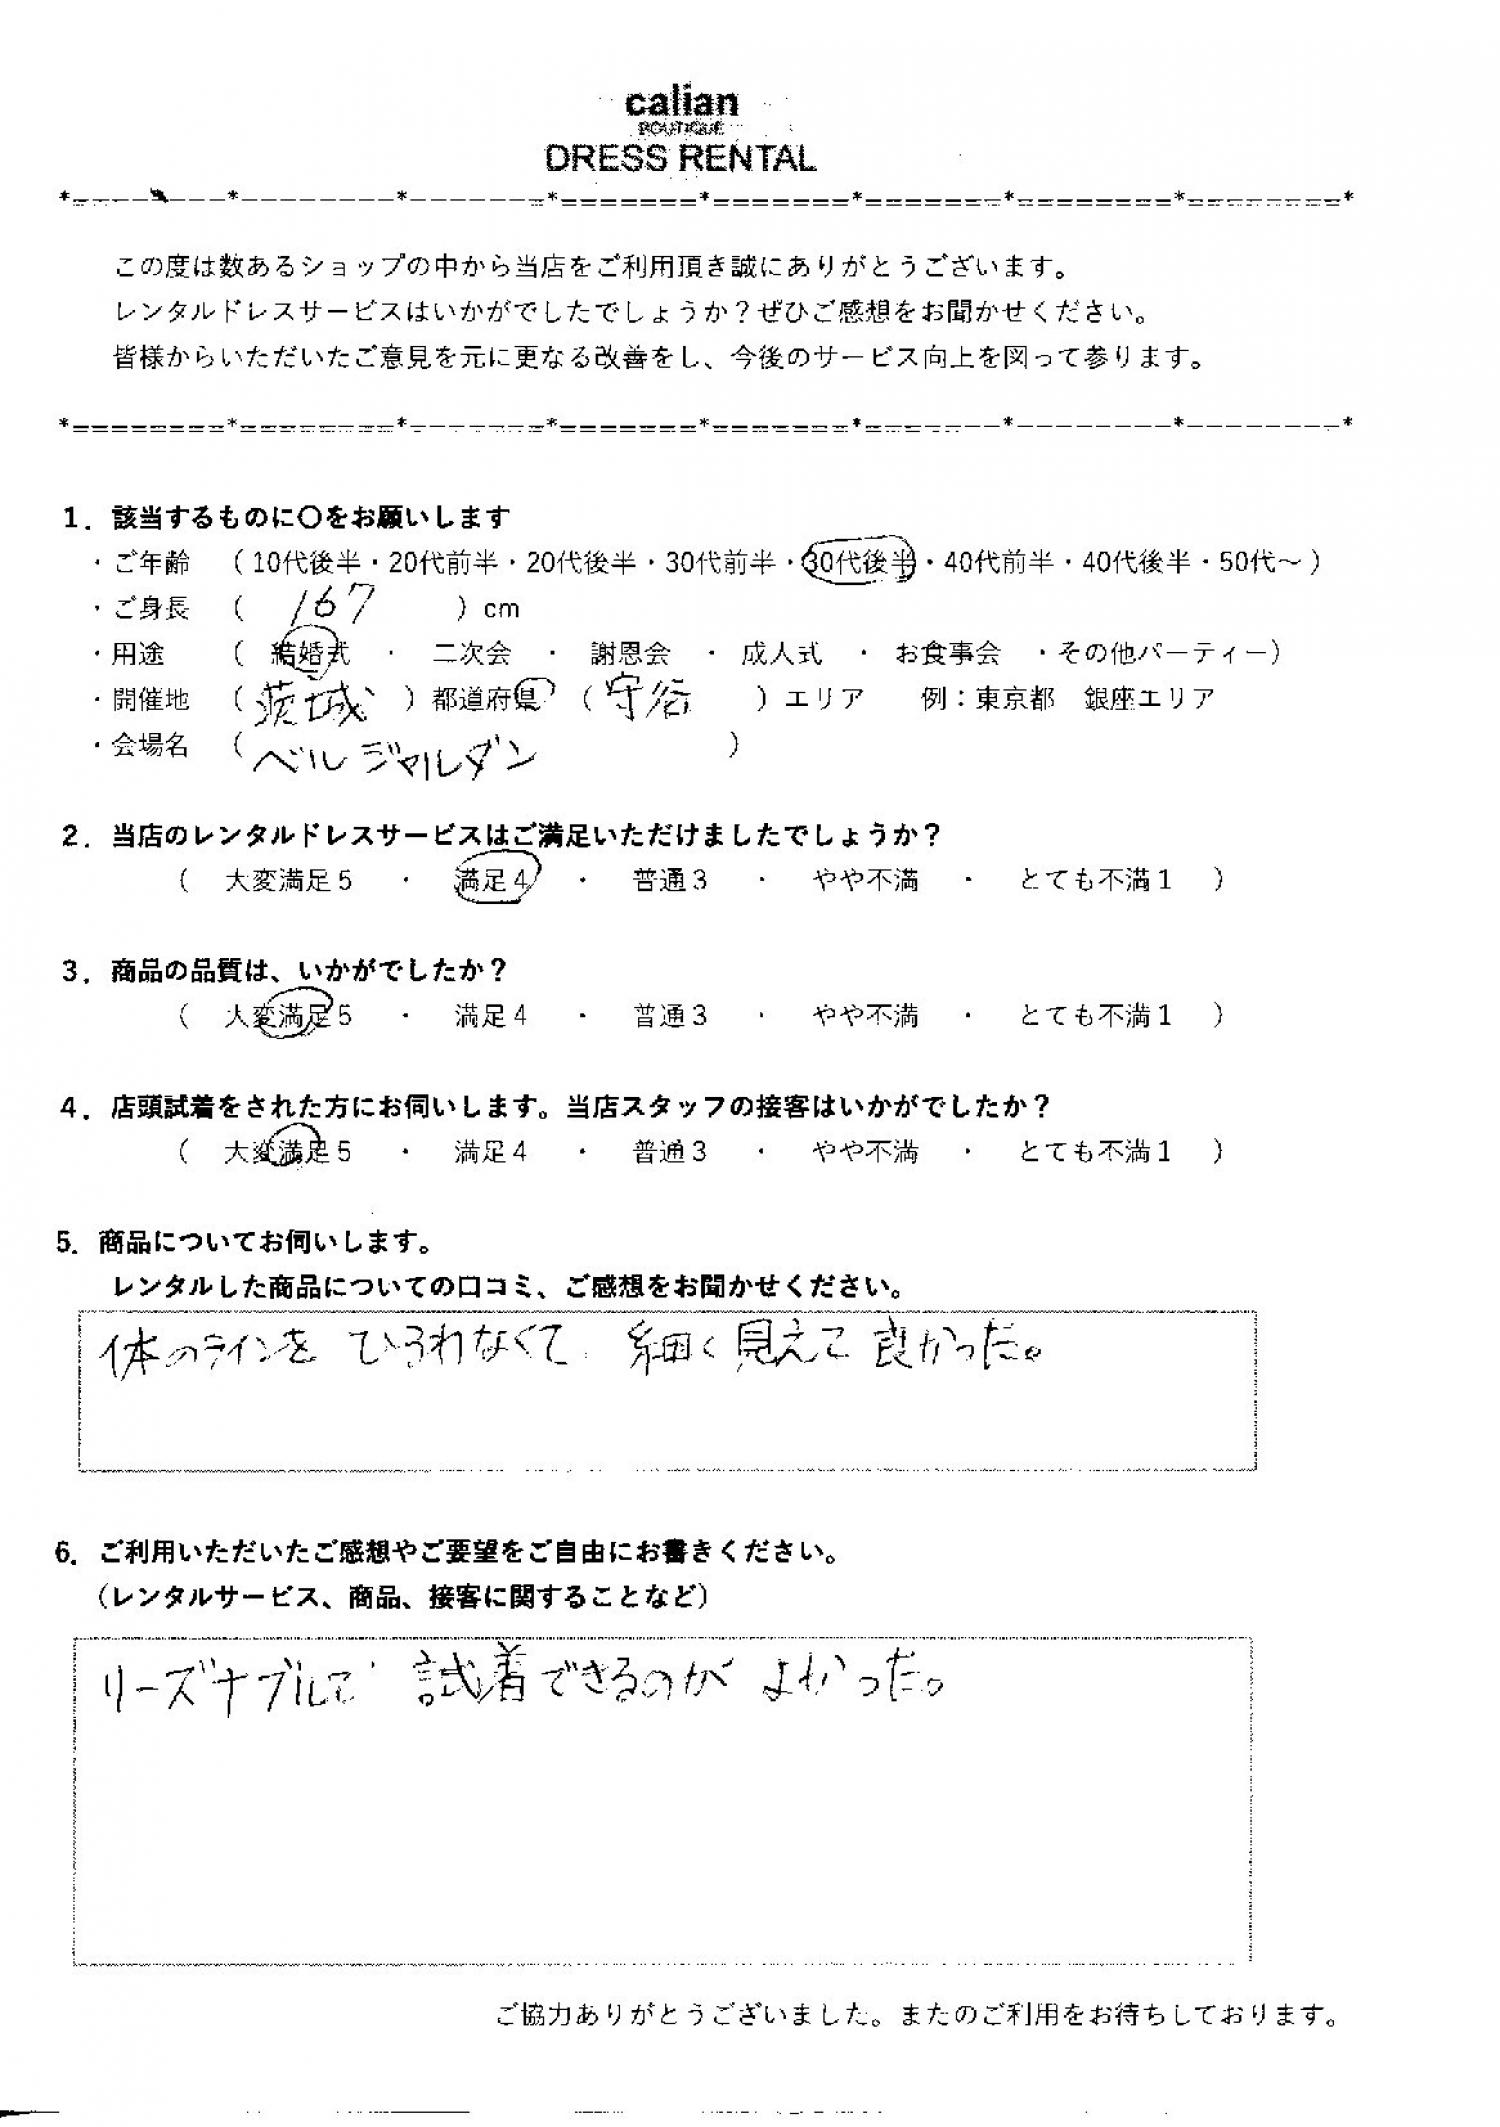 calian
BOUTIQUE
DRESS RENTAL
この度は数あるショップの中から当店をご利用頂き誠にありがとうございます。
レンタルドレスサービスはいかがでしたでしょうか？ぜひご感想をお聞かせください。
皆様からいただいたご意見を元に更なる改善をし、今後のサービス向上を図って参ります。
1．該当するものに〇をお願いします
・ご年齢 （10代後半・20代前半・20代後半・30代前半・30代後半・40代前半・40代後半・50代～）
・ご身長 （ 167 ）cm
・用途 （ 結婚式 ・ 二次会 ・ 謝恩会 ・ 成人式 ・ お食事会 ・その他パーティー）
・開催地 （ 茨城 ）都道府県 （ 守谷 ）エリア 例：東京都 銀座エリア
・会場名 （ ベルジャルダン ）
2．当店のレンタルドレスサービスはご満足いただけましたでしょうか？
（ 大変満足5 ・ 満足4 ・ 普通3 ・ やや不満 ・ とても不満1 ）
3．商品の品質は、いかがでしたか？
（ 大変満足5 ・ 満足4 ・ 普通3 ・ やや不満 ・ とても不満1 ）
4．店頭試着をされた方にお伺いします。当店スタッフの接客はいかがでしたか？
（ 大変満足5 ・ 満足4 ・ 普通3 ・ やや不満 ・ とても不満1 ）
5．商品についてお伺いします。
レンタルした商品についての口コミ、ご感想をお聞かせください。
体のラインを ひろわなくて 細く見えて良かった。
6．ご利用いただいたご感想やご要望をご自由にお書きください。
（レンタルサービス、商品、接客に関することなど）
リーズナブルで 試着できるのが よかった。
ご協力ありがとうございました。またのご利用をお待ちしております。